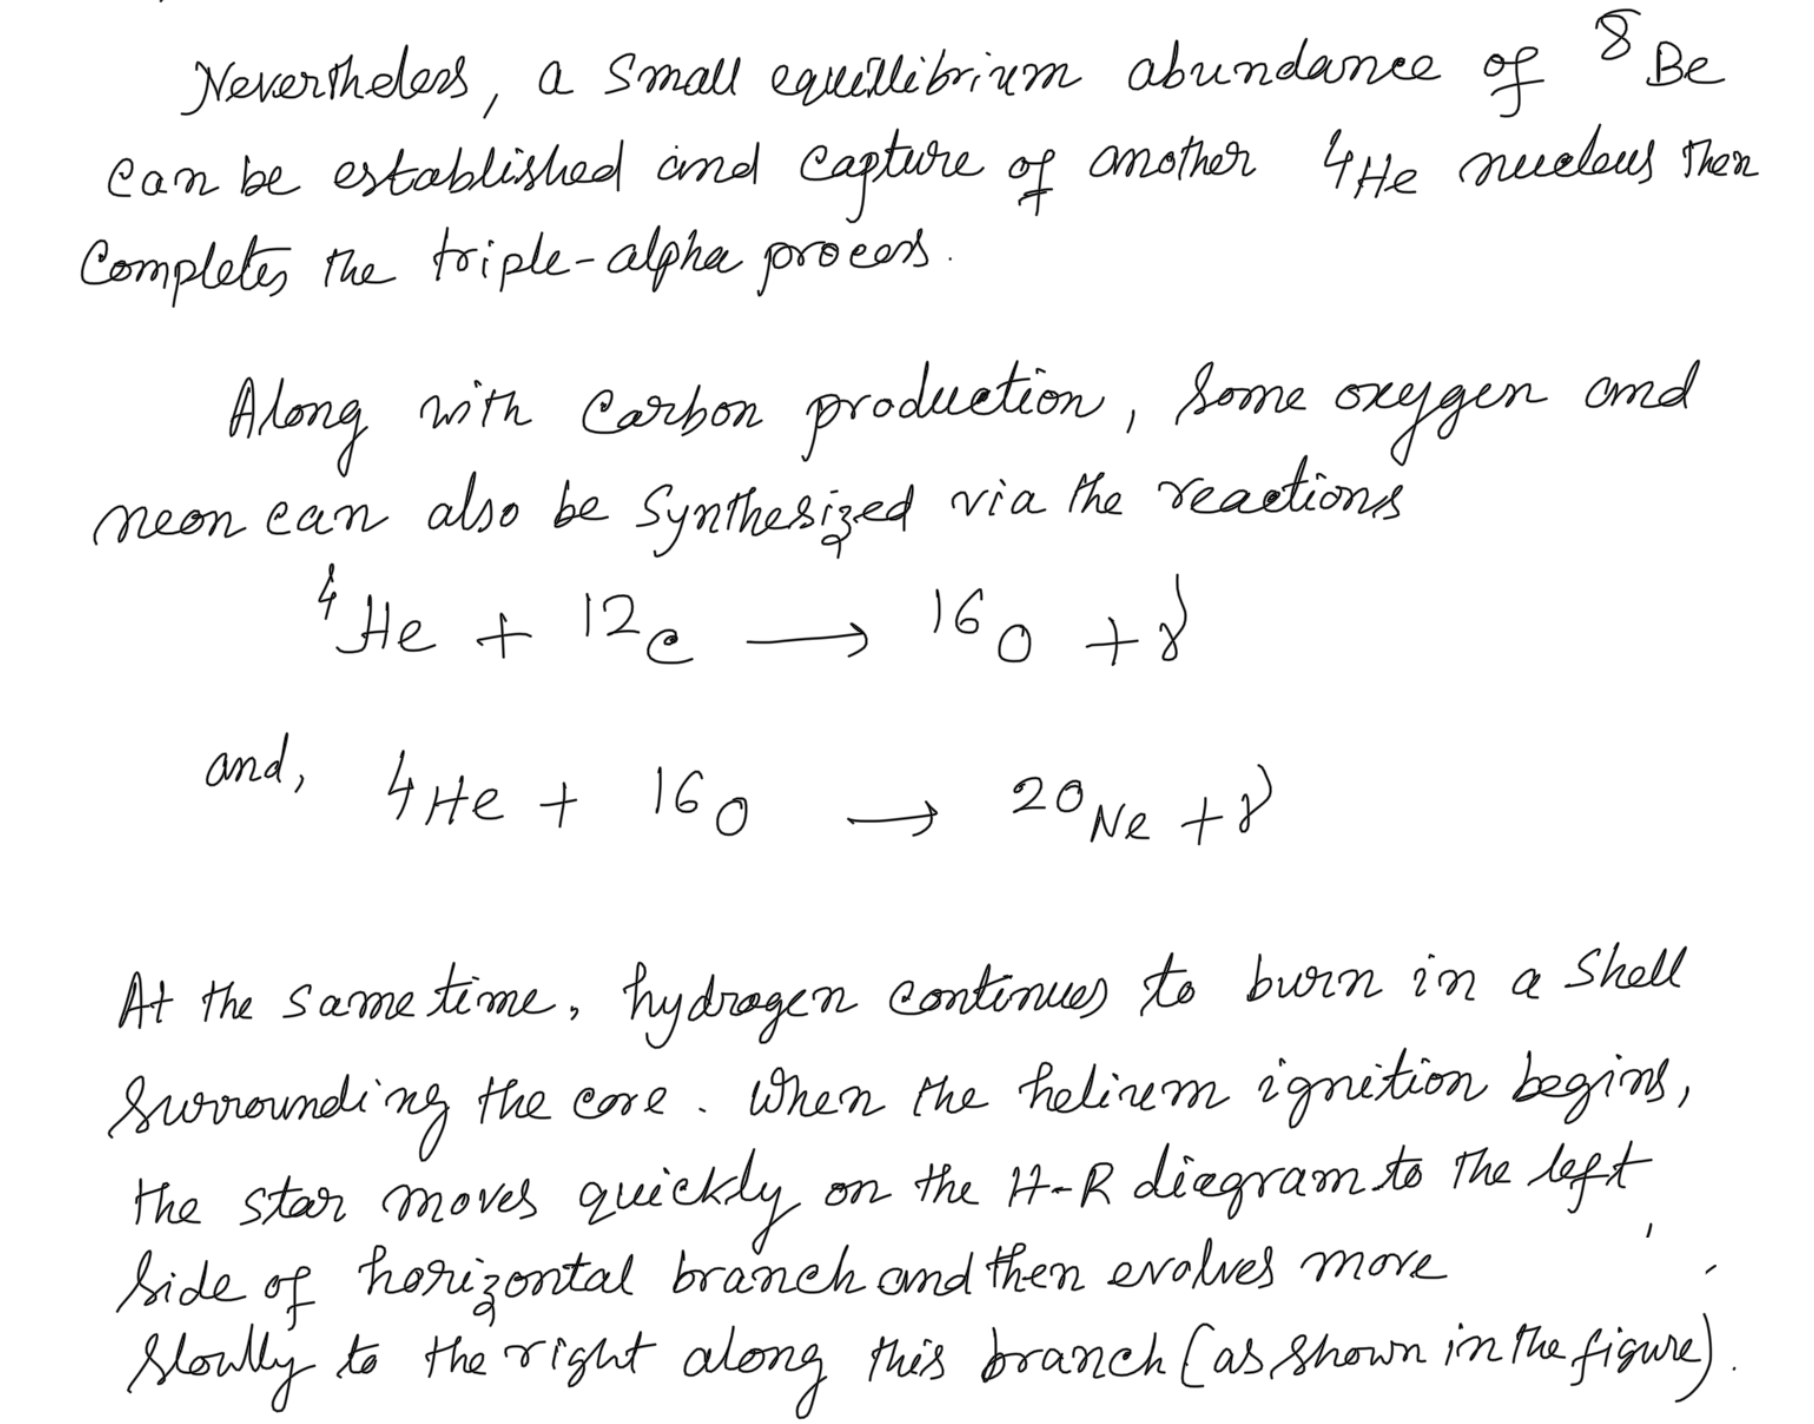 Nevertheless, a small equillibrium abundance of ⁸Be
can be established and capture of another ⁴He nucleus then
completes the triple-alpha process.
Along with carbon production, some oxygen and
neon can also be synthesized via the reactions
⁴He + ¹²C → ¹⁶O + γ
and, ⁴He + ¹⁶O → ²⁰Ne + γ
At the same time, hydrogen continues to burn in a shell
surrounding the core. When the helium ignition begins,
the star moves quickly on the H-R diagram to the left
side of horizontal branch and then evolves more
slowlly to the right along this branch (as shown in the figure).